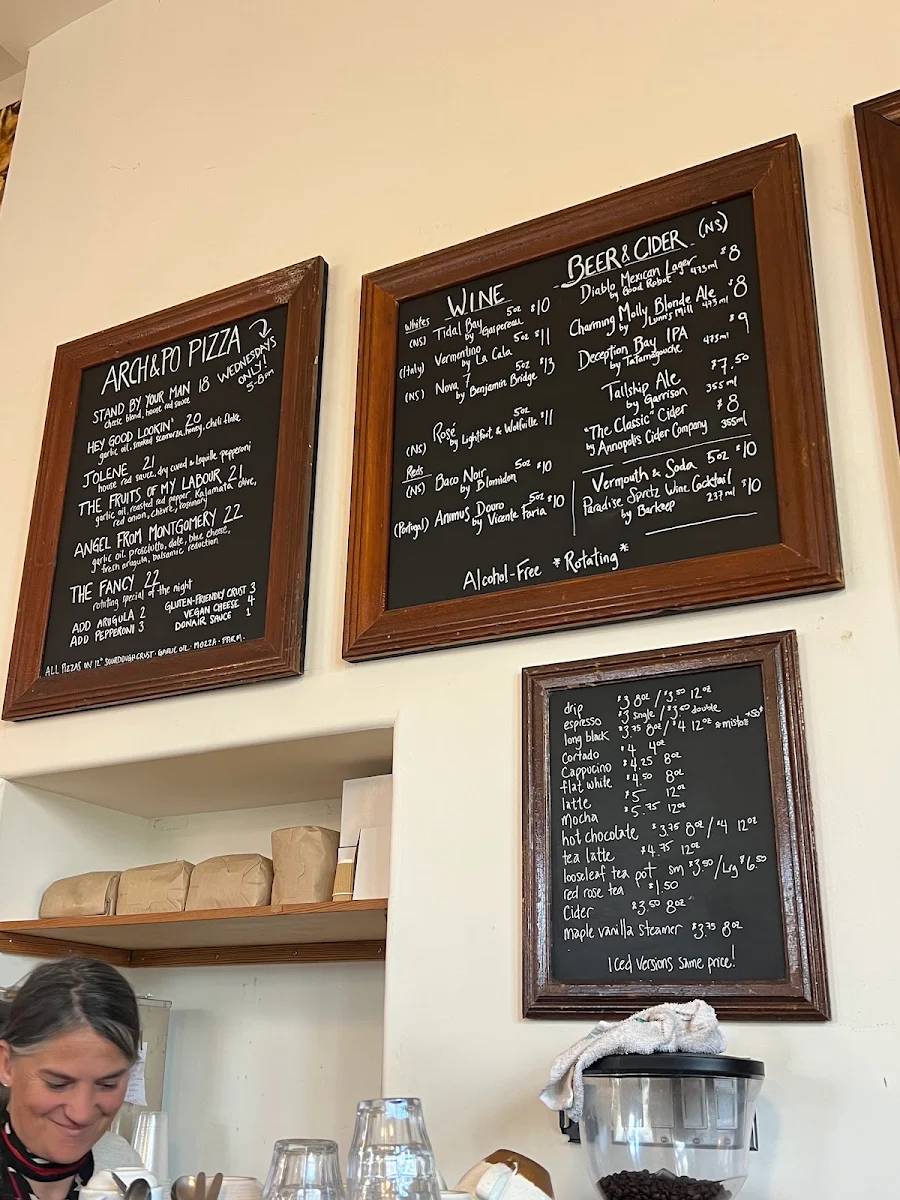 ARCH & PO PIZZA
WEDNESDAYS
ONLY!
5-8pm
STAND BY YOUR MAN 18
cheese blend, house red sauce
HEY GOOD LOOKIN' 20
garlic oil, smoked scamorza, honey, chili flake
JOLENE 21
house red sauce, dry cured & lequille pepperoni
THE FRUITS OF MY LABOUR 21
garlic oil, roasted red pepper, Kalamata olive,
red onion, chevre, rosemary
ANGEL FROM MONTGOMERY 22
garlic oil, prosciutto, date, blue cheese,
fresh arugula, balsamic reduction
THE FANCY 22
rotating special of the night
ADD ARUGULA 2
ADD PEPPERONI 3
GLUTEN-FRIENDLY CRUST 3
VEGAN CHEESE 4
DONAIR SAUCE 1
ALL PIZZAS ON 12" SOURDOUGH CRUST · GARLIC OIL · MOZZA · PARM.
WINE
Whites
(NS) Tidal Bay 5oz $10
by Gaspereau
(Italy) Vermentino 5oz $11
by La Cala
(NS) Nova 7 5oz $13
by Benjamin Bridge
(NS) Rosé 5oz $11
by Lightfoot & Wolfville
Reds
(NS) Baco Noir 5oz $10
by Blomidon
(Portugal) Animus Douro 5oz $10
by Vicente Faria
BEER & CIDER (NS)
Diablo Mexican Lager $8
by Good Robot 473ml
Charming Molly Blonde Ale $8
by Lunn's Mill 473ml
Deception Bay IPA $9
by Tatamagouche 473ml
Tallship Ale $7.50
by Garrison 355ml
"The Classic" Cider $8
by Annapolis Cider Company 355ml
Vermouth & Soda 5oz $10
Paradise Spritz Wine Cocktail
by Barkeep 237ml $10
Alcohol-Free *Rotating*
drip $3 8oz / $3.50 12oz
espresso $3 single / $3.50 double
long black $3.75 8oz / $4 12oz *misto +50¢
Cortado $4 4oz
Cappucino $4.25 8oz
flat white $4.50 8oz
latte $5 12oz
Mocha $5.75 12oz
hot chocolate $3.75 8oz / $4 12oz
tea latte $4.75 12oz
looseleaf tea pot sm $3.50 / Lrg $6.50
red rose tea $1.50
Cider $3.50 8oz
maple vanilla steamer $3.75 8oz
Iced versions same price!